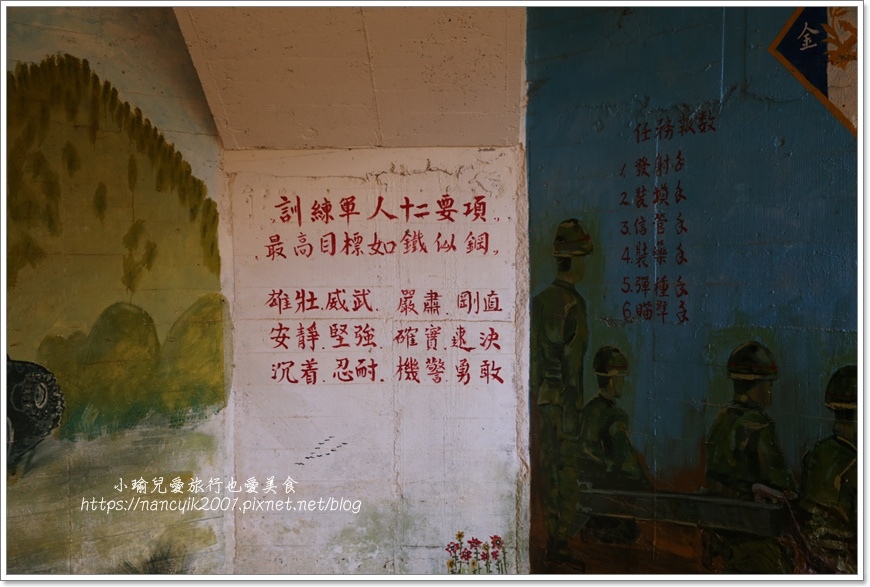 訓練軍人十二要項
最高目標如鐵似鋼
雄壯.威武.嚴肅.剛直
安靜.堅強.確實.速決
沉着.忍耐.機警.勇敢
金
任務報數
1.發射手
2.裝填手
3.信管手
4.裝藥手
5.彈種手
6.瞄準手
小瑜兒愛旅行也愛美食
https://nancyik2007.pixnet.net/blog